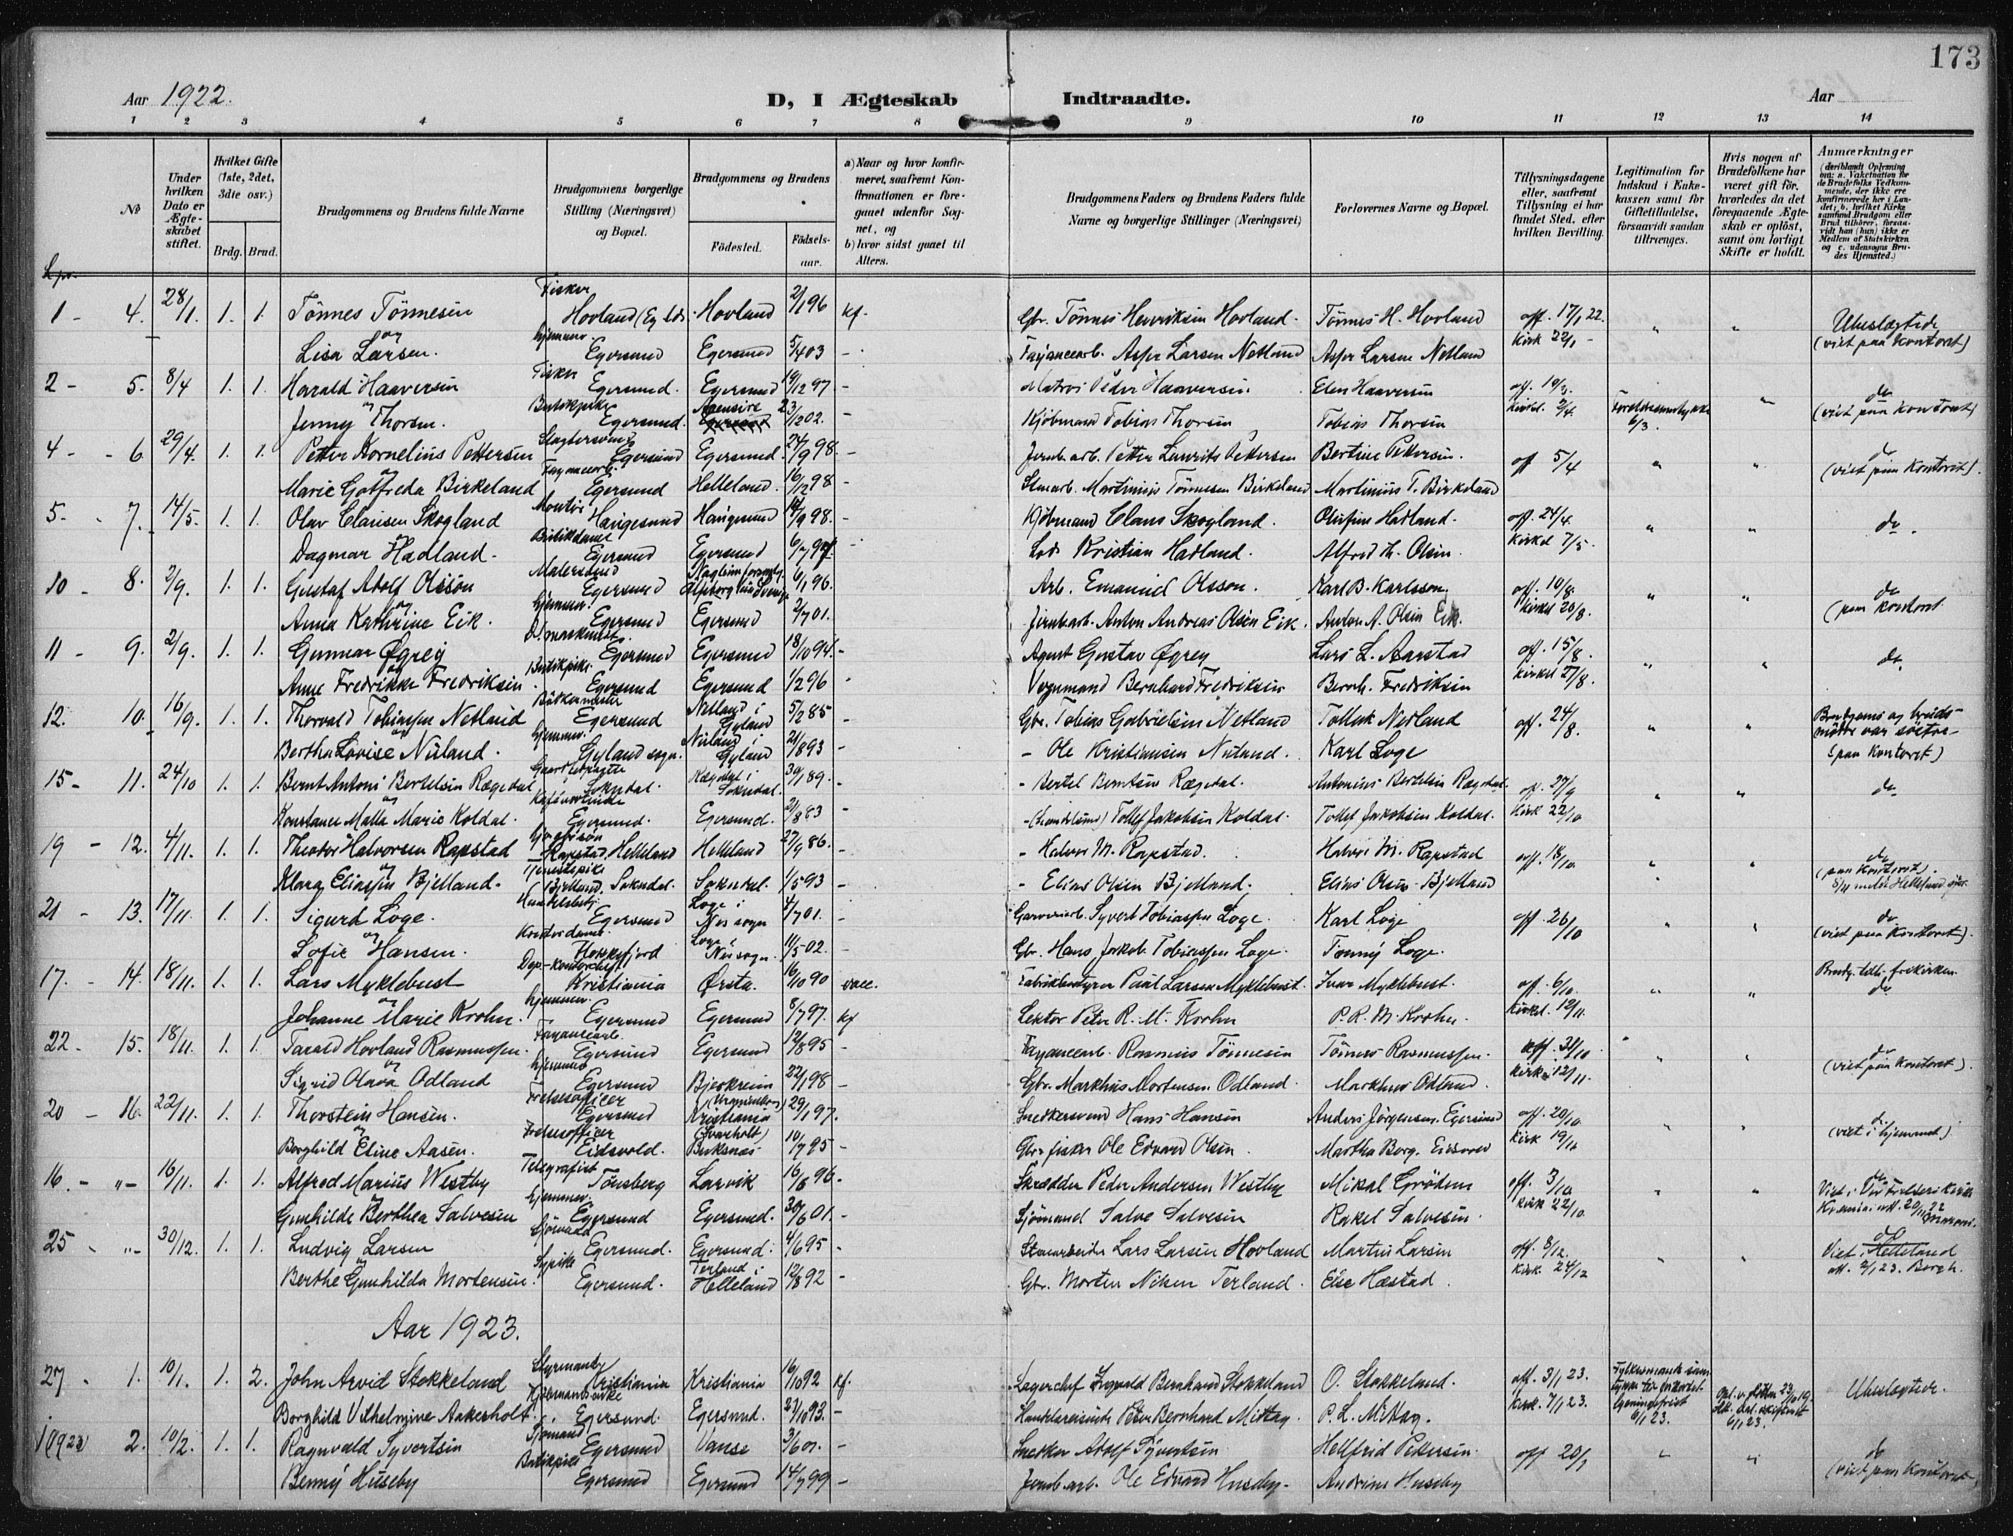 173
Aar 1922.
D, I Ægteskab Indtraadte.
Aar
1 2 3 4 5 6 7 8 9 10 11 12 13 14
No
Under hvilken Dato er Ægteskabet stiftet.
Hvilket Gifte (1ste, 2det, 3die osv.)
Brdg. Brud.
Brudgommens og Brudens fulde Navne
Brudgommens borgerlige Stilling (Næringsvei) og Bopæl.
Brudgommens og Brudens
Fødested.
Fødselsaar.
a) Naar og hvor konfirmeret, saafremt Konfirmationen er foregaaet udenfor Sognet, og
b) hvor sidst gaaet til Alters.
Brudgommens Faders og Brudens Faders fulde Navne og borgerlige Stillinger (Næringsvei)
Forlovernes Navne og Bopæl.
Tillysningsdagene eller, saafremt Tillysning ei har fundet Sted, efter hvilken Bevilling.
Legitimation for Indskud i Enkekassen samt for Giftetilladelse, forsaavidt saadan tiltrænges.
Hvis nogen af Brudefolkene har været gift før, hvorledes da det foregaaende Ægteskab er opløst, samt om lovligt Skifte er holdt.
Anmærkninger
1 - 4. 28/1. 1. 1. Tönnes Tönnesen Fisker Hovland (Eg lds. Hovland 2/1 96 kf. Gbr. Tönnes Henriksen Hovland. Tönnes H. Hovland off. 17/1 22. " " Ubeslægtede
og Lisa Larsen. hjemmev. Egersund Egersund 5/4 03 - Fayancearb. Asser Larsen Netland Asser Larsen Netland Kirk 22/1 - (viet paa Kontoret)
2 - 5. 8/4 1. 1. Harald Haaversen Fisker Egersund. Egersund 19/12 97 - Matros Peder Haaversen Elen Haaversen
Jenny Thorsen. Butikpike Egersund. 23/2 02. - Kjöbmand Tobias Thorsen Tobias Thorsen 6/3. " (viet paa Kontoret)
4 - 6. 29/4. 1. 1. Petter Kornelius Pettersen Slagtersvend Egersund Egersund. 24/9 98. - Jernb.arb. Petter Laurits Pettersen Bertine Pettersen. off 5/4 " " do
og Marie Gotfreda Birkeland Fayancearb. Egersund Helleland. 16/12 98 - Martinius Tönnesen Birkeland Martinius T. Birkeland (viet paa Kontoret).
5. - 7. 14/5. 1. 1. Olav Clausen Skogland Montör Haugesund Haugesund /9 98. - Kjöbmand Claus Skogland. Hadland. off. 24/4. " " do.
Dagmar Hadland. Butikdame Egersund Egersund 6/7 97 - Lods Kristian Hadland. Alfred H. Olsen. Kirkel 7/5.
10 - 8. 2/9. 1. 1. Gustaf Adolf Olsson Malersvend Egersund 6/1 96. Arb. Emanuel Olsson. Karl B. Karlsson. off. 10/8. " " do
og Anna Kathrine Eik. hjemmev. Egersund Egersund 2/7 01. - Jernb.arb. Anton Andreas Olsen Eik. Anton A. Olsen Eik. Kirkel 20/8. (paa Kontoret
11 - 9. 2/9. 1. 1. Gunnar Øgrey Egersund Egersund 18/10 94. - Agent Gustav Øgrey Lars L. Aarstad off. 15/8. " " do.
Anne Fredrikke Fredriksen. Butikpike. Egersund Egersund 1/2 96 - Vognmand Bernhard Fredriksen Bernh. Fredriksen Kirkel 27/8.
12. 10. 16/9. 1. 1. Thorvald Tobiassen Netland Egersund Netland i Gyland 5/2 85 - Gbr. Tobias Gabrielsen Netland Tollak Netland off. 24/8. " " Brudgoms og bruds- mödre var söstre
Bertha Lovise Nuland. hjemmev. Gyland sogn. Nuland i Gyland 2/8 93 - - Ole Kristiansen Nuland. Karl Loge (paa Kontoret)
15 - 11. 24/10 1. 1. Bernt Antoni Bertelsen Rægedal Sokndal. Rægedal i Sokndal. 30/1 89. - - Bertel Berntsen Rægedal. Antonius Bertelsen Rægedal. off. 27/9 " " do.
og Konstance Malla Marie Koldal. Egersund. Egersund. 2/8 83 Tollef Jakobsen Koldal. Tollef Jakobsen Koldal. Kirk 22/10
19 - 12. 4/11. 1. 1. Theodor Halvorsen Rapstad Rapstad, Helleland Helleland 27/9 86. - - Halvor M. Rapstad. Halvor M. Rapstad off. 18/10. " " do
og Klara Eliassen Bjelland. Tjenestepike Bjelland, Sokndal. Sokndal. 1/5 93 - - Elias Olsen Bjelland. Elias Olsen Bjelland (paa Kontoret).
21 - 13. 17/11. 1. 1. Sigurd Loge. Egersund Loge i Nes sogn 4/7 01. - Garveriarb. Syvert Tobiassen Loge. Karl Loge off 26/10 " " do
og Sofie Hansen. Kontordame. Loge i Nes sogn. 11/5 02. - Gbr. Hans Jakob Tobiassen Loge. Tommy Loge. (viet paa Kontoret).
17. - 14. 18/11. 1. 1. Lars Myklebust Kristiania Ørsta. 16/10 90 vacc. Paul Larsen Myklebust. Ivar Myklebust. off. 6/10. " " Brudg. tilh. frikirken. do
og Johanne Marie Krohn. hjemmev. Egersund Egersund 8/7 97. kf Lektor Peter R. M. Krohn P. R. M. Krohn. Kirkel. 12/11.
22 - 15. 18/11. 1. 1. Tarald Hovland Rasmussen. Fayancearb. Egersund Egersund 12/8 95 - Fayancearb. Rasmus Tönnesen Tönnes Rasmussen. off 31/10 " " do
og Sigrid Olava Odland hjemmev. Egersund Bjerkreim 22/1 98 - Gbr. Markhus Mortensen Odland. Markhus Odland. Kirk. 12/11. (viet paa Kontoret).
20 - 16. 22/11. 1. 1. Thorstein Hansen. Frelsesofficer Egersund Kristiania 29/1 97. Snedkersvend Hans Hansen Anders Jörgensen, Egersund off. 20/10. " " do.
og Borghild Eline Aasen. Frelsesofficer Eidsvold. (Svarholt) Buksnæs 10/7 95 - Gbr. fisker Ole Edvard Olsen Martha Berg. Eidsvold Kirk 19/11 (viet i hjemmet)
16. - "- 16/11. 1. 1. Alfred Marius Westby Telegrafist Tönsberg Larvik 16/8 96 - Skrædder Peder Andersen Westby Mikal Grödem off. 3/10. " " do.
og Gunhilde Berthea Salvesen hjemmev. Egersund Egersund. 30/6 01. - Sjömand Salve Salvesen Rakel Salvesen. Kirk 22/10. Viet i Vor Frelsers Kirke
25 - "- 30/12. 1. 1. Ludvig Larsen Egersund. Egersund. 4/6 95 - Lars Larsen Hovland Martin Larsen off. 8/12. " " Viet i Helleland
Berthe Gunhilda Mortensen. Sypike Egersund. Terland i Helleland 12/8 92 - Gbr. Morten Nilsen Terland. Else Hæstad. Kirk 24/12 att. 2/1 23. Borgh.
Aar 1923.
27 - 1. 10/1. 1. 2. John Arvid Stokkeland Styrmand Kristiania Kristiania 16/10 92 kf. Lagerchef Ingvald Bernhard Stokkeland O. Stokkeland. off. 3/1 23. Ubeslægtede.
Borghild Vilhelmine Aakerholt. Egersund. Egersund. 21/10 93. - Peter Bernhard Mittag. P. L. Mittag. Kirk. 7/1 23. 6/1 23. 6/1 23.
1 1922 2. 10/2. 1. 1. Ragnvald Syvertsen Sjömand Egersund Vanse 3/6 01. - Snekker Adolf Syvertsen. Hellfrid Petersen. off 20/1 " " do
Benny Huseby Butikpike Egersund Egersund 14/7 99 - Jernb.arb. Ole Edvard Huseby. Andrine Huseby (viet paa Kontoret